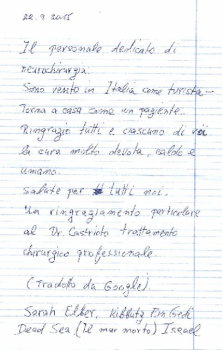 22.9 2015
Il personale dedicato di
neurochirurgia.
Sono venuto in Italia come turista -
Torno a casa come un paziente.
Ringrazio tutti e ciascuno di voi
la cura molto devota, caldo e
umano.
Salute per tutti noi.
Un ringraziamento particolare
al Dr. Castrioto trattamento
chirurgico professionale.
(Tradotto da Google).
Sarah Elber, Kibbutz Ein Gedi
Dead Sea (Il mar morto) Israel